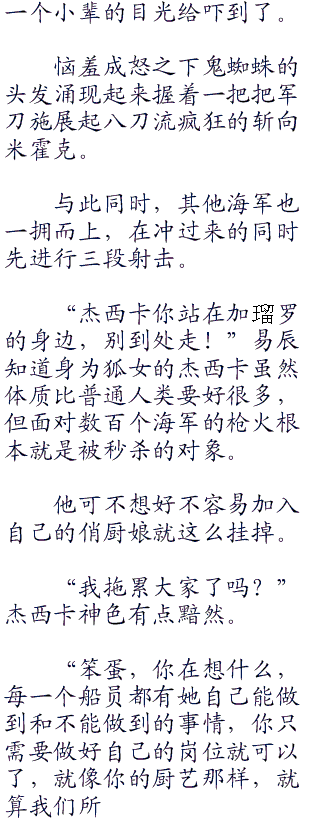 一个小辈的目光给吓到了。
恼羞成怒之下鬼蜘蛛的
头发涌现起来握着一把把军
刀施展起八刀流疯狂的斩向
米霍克。
与此同时，其他海军也
一拥而上，在冲过来的同时
先进行三段射击。
“杰西卡你站在加瑠罗
的身边，别到处走！”易辰
知道身为狐女的杰西卡虽然
体质比普通人类要好很多，
但面对数百个海军的枪火根
本就是被秒杀的对象。
他可不想好不容易加入
自己的俏厨娘就这么挂掉。
“我拖累大家了吗？”
杰西卡神色有点黯然。
“笨蛋，你在想什么，
每一个船员都有她自己能做
到和不能做到的事情，你只
需要做好自己的岗位就可以
了，就像你的厨艺那样，就
算我们所